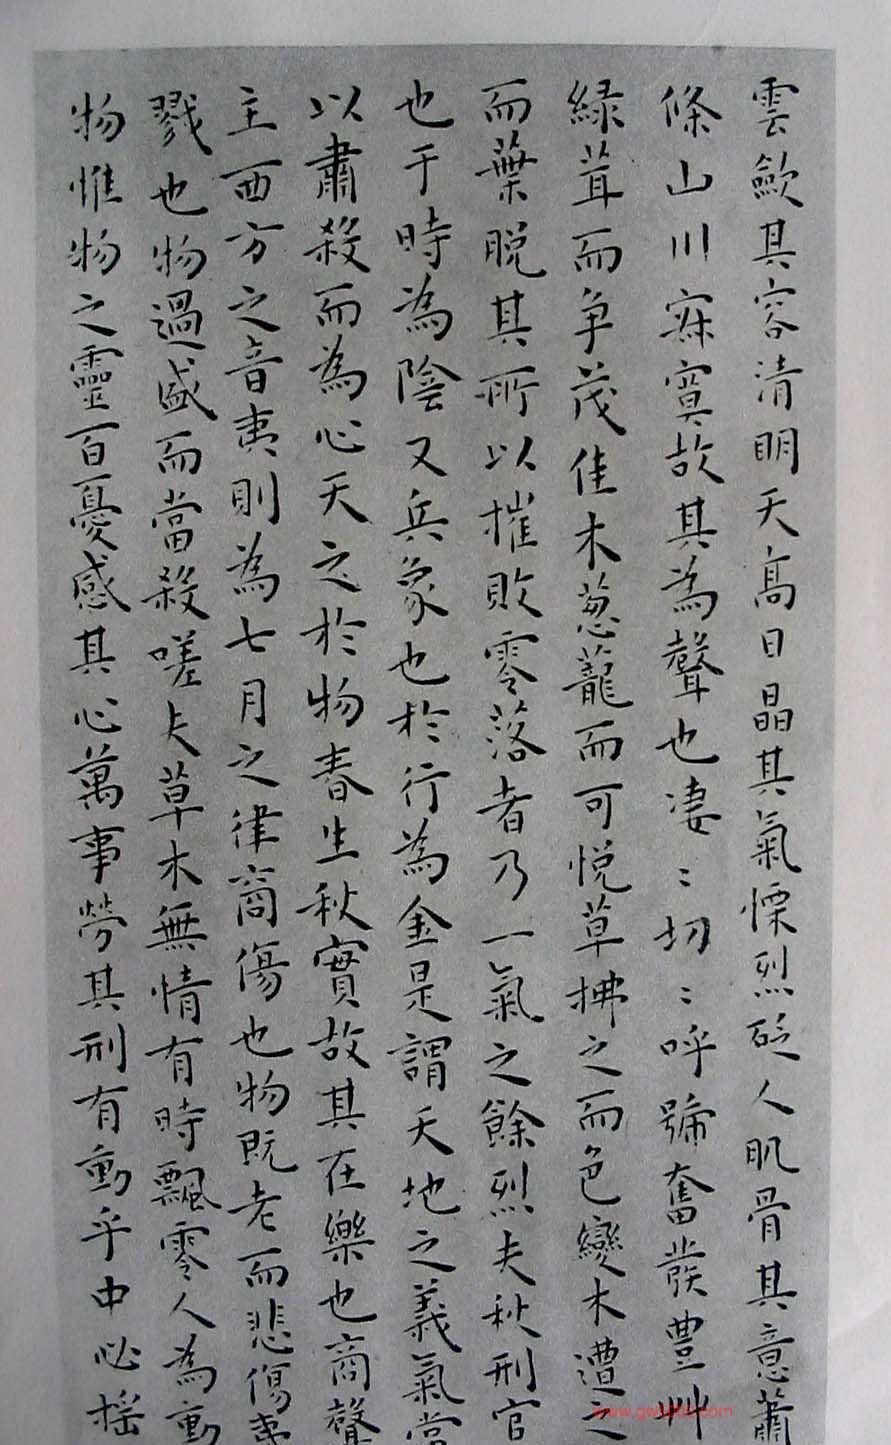 雲歛其容清明天高日晶其氣慄烈砭人肌骨其意蕭
條山川寂寞故其為聲也淒〻切〻呼號奮發豊艸
緑茸而争茂佳木葱蘢而可悦草拂之而色變木遭之
而葉脱其所以摧敗零落者乃一氣之餘烈夫秋刑官
也于時為陰又兵象也於行為金是謂天地之義氣常
以肅殺而為心天之於物春生秋實故其在樂也商聲
主西方之音夷則為七月之律商傷也物既老而悲傷夷
戮也物過盛而當殺嗟夫草木無情有時飄零人為動
物惟物之靈百憂感其心萬事勞其刑有動乎中必摇